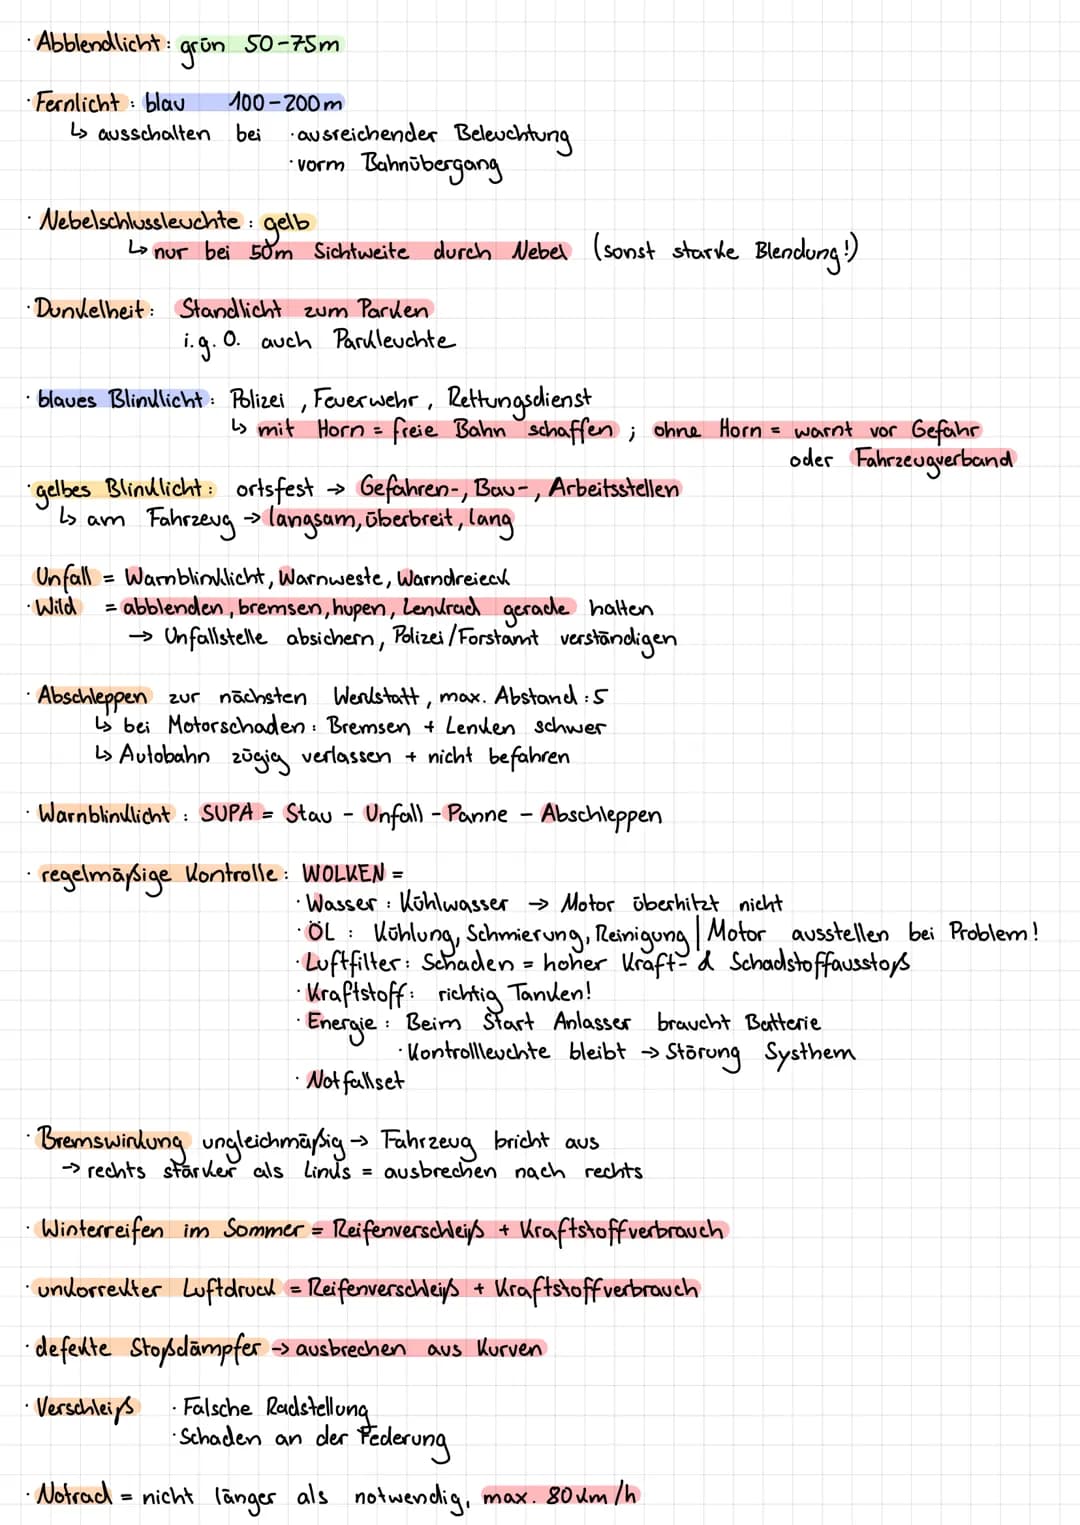 · Abblendlicht: grün 50-75m
· Fernlicht: blau 100-200m
↳ ausschalten bei · ausreichender Beleuchtung
· vorm Bahnübergang
· Nebelschlussleuchte: gelb
↳ nur bei 50m Sichtweite durch Nebel (sonst starke Blendung!)
· Dunkelheit: Standlicht zum Parken
i.g.O. auch Parkleuchte
· blaues Blinklicht: Polizei, Feuerwehr, Rettungsdienst
↳ mit Horn = freie Bahn schaffen; ohne Horn = warnt vor Gefahr
oder Fahrzeugverband
· gelbes Blinklicht: ortsfest → Gefahren-, Bau-, Arbeitsstellen
↳ am Fahrzeug → langsam, überbreit, lang
Unfall = Warnblinklicht, Warnweste, Warndreieck
· Wild = abblenden, bremsen, hupen, Lenkrad gerade halten
→ Unfallstelle absichern, Polizei/Forstamt verständigen
· Abschleppen zur nächsten Werkstatt, max. Abstand: 5
↳ bei Motorschaden: Bremsen + Lenken schwer
↳ Autobahn zügig verlassen + nicht befahren
· Warnblinklicht: SUPA = Stau - Unfall - Panne - Abschleppen
· regelmäßige Kontrolle: WOLKEN =
· Wasser: Kühlwasser → Motor überhitzt nicht
· ÖL: Kühlung, Schmierung, Reinigung | Motor ausstellen bei Problem!
· Luftfilter: Schaden = hoher Kraft- & Schadstoffausstoß
· Kraftstoff: richtig Tanken!
· Energie: Beim Start Anlasser braucht Batterie
· Kontrollleuchte bleibt → Störung Systhem
· Notfallset
· Bremswirkung ungleichmäßig → Fahrzeug bricht aus
→ rechts stärker als links = ausbrechen nach rechts
· Winterreifen im Sommer = Reifenverschleiß + Kraftstoffverbrauch
· unkorrekter Luftdruck = Reifenverschleiß + Kraftstoffverbrauch
· defekte Stoßdämpfer → ausbrechen aus Kurven
· Verschleiß · Falsche Radstellung
· Schaden an der Federung
· Notrad = nicht länger als notwendig, max. 80 km/h